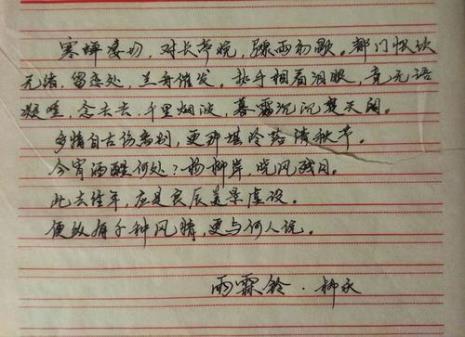 寒蝉凄切，对长亭晚，骤雨初歇。都门帐饮
无绪，留恋处，兰舟催发。执手相看泪眼，竟无语
凝噎，念去去，千里烟波，暮霭沉沉楚天阔。
多情自古伤离别，更那堪冷落清秋节。
今宵酒醒何处？杨柳岸，晓风残月。
此去经年，应是良辰美景虚设。
便纵有千种风情，更与何人说。
雨霖铃·柳永